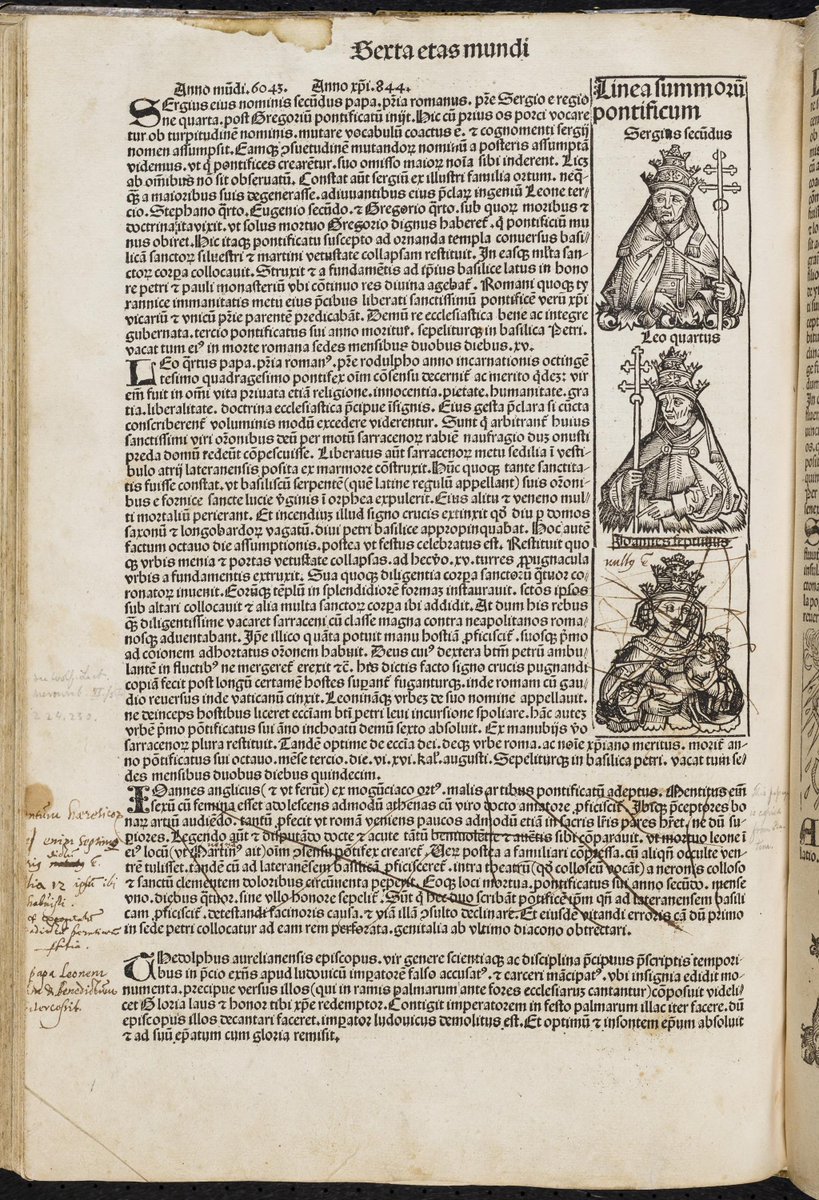 Sexta etas mundi
Anno mũdi.6043. Anno xp̃i.844.
Linea summorũ
pontificum
Sergius secũdus
SErgius eius nominis secũdus papa. p̃ria romanus. p̃re Sergio e regio
ne quarta. post Gregoriũ pontificatũ inijt. Hic cũ prius os porci vocare
tur ob turpitudinẽ nominis. mutare vocabulũ coactus ẽ. ⁊ cognomenti sergij
nomen assumpsit. Eamq̃ ɔsuetudinẽ mutandoꝝ nominũ a posteris assumptã
videmus. vt q̃ põtifices crearẽtur. suo omisso maioꝝ noĩa sibi inderent. Licꝫ
ab om̃ibus nõ sit obseruatũ. Constat aũt sergiũ ex illustri familia ortum. neq̃⸗
q̃ a maioribus suis degenerasse. adiuuantibus eius p̃claꝝ ingeniũ Leone ter⸗
cio. Stephano q̃rto. Eugenio secũdo. ⁊ Gregorio q̃rto. sub quoꝝ moribus ⁊
doctrina ita vixit. vt solus mortuo Gregorio dignus haberet̃. q̃ pontificiũ mu
nus obiret. Hic itaq̃ pontificatu suscepto ad ornanda templa conuersus basi⸗
licã sanctoꝝ siluestri ⁊ martini vetustate collapsam restituit. In easq̃ ml̃ta san⸗
ctoꝝ corpa collocauit. Struxit ⁊ a fundamẽtis ad ip̃ius basilice latus in hono
re petri ⁊ pauli monasteriũ vbi cõtinuo res diuina agebat̃. Romani quoq̃ ty
rannice immanitatis metu eius p̃cibus liberati sanctissimũ pontificẽ veꝝ xp̃i
vicariũ ⁊ vnicũ p̃rie parentẽ predicabãt. Demũ re ecclesiastica bene ac integre
gubernata. tercio pontificatus sui anno moritur̃. sepeliturq̃ in basilica Petri.
vacat tum eiꝰ in morte romana sedes mensibus duobus diebus.xv.
Leo quartus
LEo q̃rtus papa. p̃ria romanꝰ. p̃re rodulpho anno incarnationis octingẽ
tesimo quadragesimo pontifex oĩm cõsensu decernit̃ ac merito q̃dẽꝫ: vir
em̃ fuit in om̃i vita priuata etiã religione. innocentia. pietate. humanitate. gra
tia. liberalitate. doctrina ecclesiastica p̃cipue ĩsignis. Eius gesta p̃clara si cũcta
conscriberent̃ voluminis modũ excedere viderentur. Sunt q̃ arbitrant̃ huius
sanctissimi viri or̃onibus deũ per motũ sarracenoꝝ rabiẽ naufragio duꝫ onusti
preda domũ redeũt cõpescuisse. Liberatus aũt sarracenoꝝ metu sedilia ĩ vesti⸗
bulo atrij lateranensis posita ex marmore cõstruxit. Hũc quoq̃ tante sanctita⸗
tis fuisse constat. vt basiliscũ serpentẽ(que latine regulũ appellant) suis or̃oni⸗
bus e fornice sancte lucie ṽginis ĩ orphea expulerit. Eius alitu ⁊ veneno mul⸗
ti mortaliũ perierant. Et incendiuꝫ illud signo crucis extinxit qd̃ diu p domos
saxonũ ⁊ longobardoꝝ vagatũ. diui petri basilice appropinquabat. Hoc autẽ
factum octauo die assumptionis. postea vt festus celebratus est. Restituit quo
q̃ vrbis menia ⁊ portas vetustate collapsas. ad hecṽo.xv.turres ꝓpugnacula
vrbis a fundamentis extruxit. Sua quoq̃ diligentia corpa sanctoꝝ q̃tuor co⸗
ronatoꝝ inuenit. Eorũq̃ tẽplũ in splendidiorẽ formaꝫ instaurauit. sctõs ip̃sos
sub altari collocauit ⁊ alia multa sanctoꝝ corpa ibi addidit. At dum his rebus
q̃ diligentissime vacaret sarraceni cũ classe magna contra neapolitanos roma⸗
nosq̃ aduentabant. Ip̃e illico q̃uãta potuit manu hostiã ꝓficiscit̃. suosq̃ p̃mo
ad coĩonem adhortatus or̃onem habuit. Deus cuiꝰ dextera btm̃ petrũ ambu⸗
lantẽ in fluctibꝰ ne mergeret̃ erexit ⁊c̃. hijs dictis facto signo crucis pugnandi
copiã fecit post longũ certamẽ hostes supant̃ fuganturq̃. inde romam cũ gau⸗
dio reuersus inde vaticanũ cinxit. Leoninãq̃ vrbeꝫ de suo nomine appellauit.
ne deinceps hostibus liceret ecc̃am bt̃i petri leui incursione spoliare. hãc auteꝫ
vrbẽ p̃mo põtificatus sui ãno inchoatũ demũ sexto absoluit. Ex manubijs ṽo
sarracenoꝝ plura restituit. Tandẽ optime de ecc̃a dei. deq̃ vrbe roma. ac noĩe xp̃iano meritus. morit̃ an⸗
no põtificatus sui octauo. mẽse tercio. die.vi.xvi.kal̃. augusti. Sepeliturq̃ in basilica petri. vacat tum se⸗
des mensibus duobus diebus quindecim.
Joannes septimus
IOannes anglicus (⁊ vt ferũt) ex mogũciaco ortꝰ. malis artibus pontificatũ adeptus. Mentitus em̃
sexũ cũ femina esset adolescens admodũ athenas cũ viro docto amatore ꝓficiscit̃. Ibiq̃ p̃ceptores bo
naꝝ artiũ audiẽdo. tantũ ꝓfecit vt romã veniens paucos admodũ etiã in sacris lr̃is pares hr̃et. ne dũ su⸗
piores. Legendo aũt ⁊ disputãdo docte ⁊ acute tãtũ beniuolẽtie ⁊ auẽtis sibi cõparauit. vt mortuo leone ĩ
eiꝰ locũ(vt Martinꝰ ait)oĩm ɔsensu põtifex crearet̃. Veꝝ postea a familiari cõpressa. cũ aliqñ occulte ven⸗
trẽ tulisset. tandẽ cũ ad lateranẽsem basilicã ꝓficisceret̃. intra theatrũ(qd̃ collosẽũ vocãt) a neronis colloso
⁊ sanctũ clementem doloribus circũuenta pepit. Eoq̃ loci mortua. pontificatus sui anno secũdo. mense
vno. diebus q̃tuor. sine vllo honore sepelit̃. Sũt q̃ hec duo scribãt põtificẽ ip̃m qñ ad lateranensem basili
cam ꝓficiscit̃. detestandi facinoris causa. ⁊ viã illam ɔsulto declinare. Et eiusdẽ vitandi erroris cã dũ primo
in sede petri collocatur ad eam rem perforata. genitalia ab vltimo diacono obtrectari.
THeolphus aurelianensis episcopus. vir genere scientiaq̃ ac disciplina p̃cipuus p̃scriptis tempori⸗
bus in p̃cio ex̃ns apud ludouicũ imp̃atorẽ falso accusatꝰ. ⁊ carceri mãcipatꝰ. vbi insignia edidit mo⸗
numenta. precipue versus illos (qui in ramis palmarum ante fores ecclesiaꝝ cantantur) cõposuit videli⸗
cet Gloria laus ⁊ honor tibi xp̃e redemptor. Contigit imperatorem in festo palmarum illac iter facere. dũ
episcopus illos decantari faceret. imp̃ator ludouicus demolitus est. Et optimũ ⁊ insontem ep̃um absoluit
⁊ ad suũ ep̃atum cum gloria remisit.
papa Leonem
Benedictum